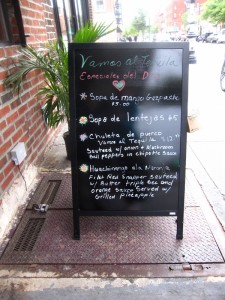 Vamos al Tequila
Especiales del D
Sopa de mango Gazpacho
$5.00
Sopa de lentejas $5
Chuleta de puerco
Vamos al Tequila
Sauteed w/ onion + Mushroom
Bell peppers in chipotle sauce
Huachinango ala Naranja
Filet Red Snapper sauteed
w/ Butter Triple Sec and
orange sauce Served w/
Grilled Pineapple